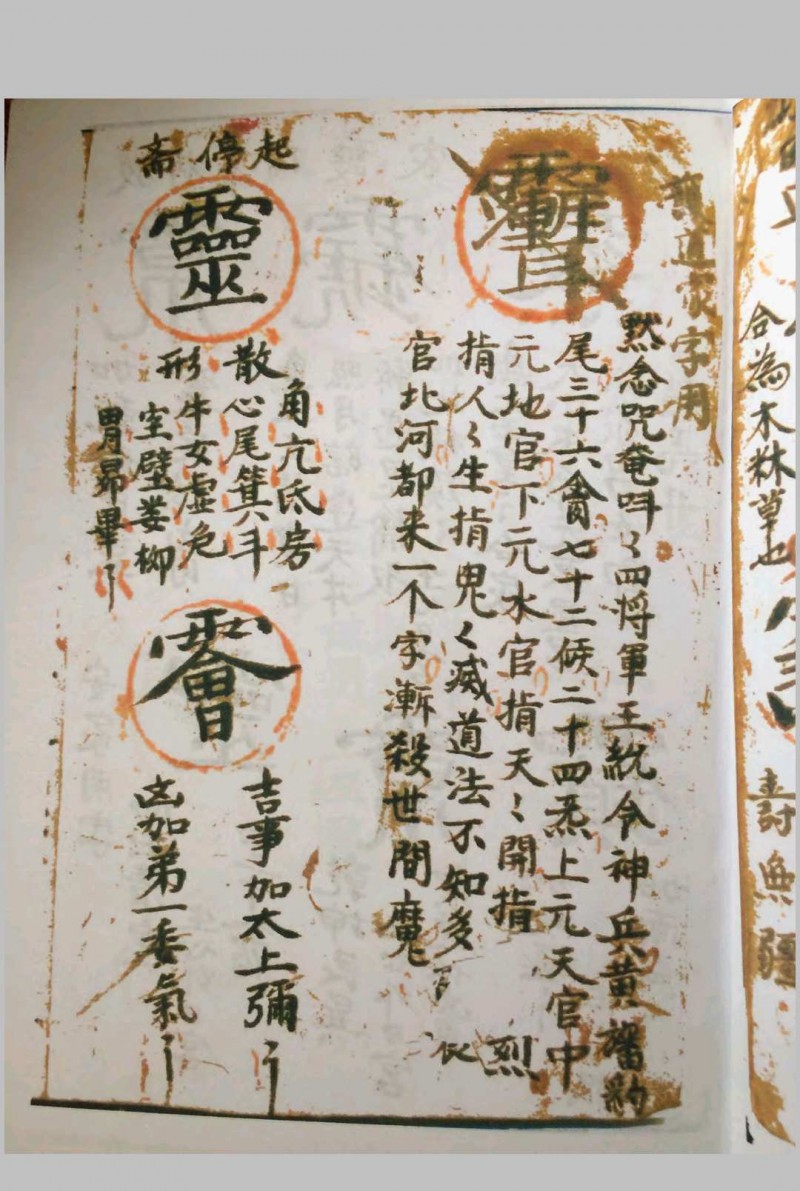 合為木林草也
壽無疆
道家字用
默念咒奄吽〻四将軍王統令神兵黄旛豹
尾三十六禽七十二候二十四炁上元天官中
元地官下元水官指天〻開指
指人〻生指鬼〻滅道法不知多
烈
官北河都来一个字漸殺世間魔
起停斎
靈
角亢氐房
散心尾箕斗
形牛女虚危
室壁婁柳
胃昴畢
吉事加太上彌
凶加弟一委氣